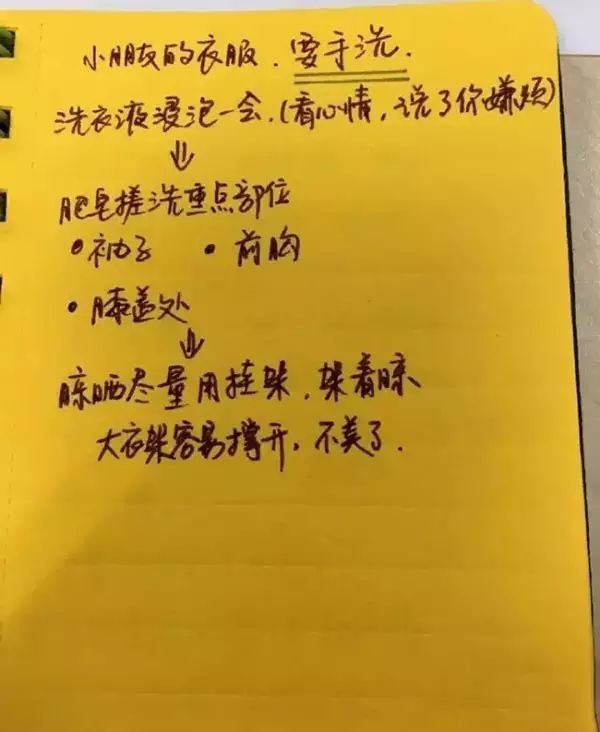 小朋友的衣服.要手洗.
洗衣液浸泡一会.(看心情,说了你嫌烦)
⇓
肥皂搓洗重点部位
•袖子 •前胸
•膝盖处
⇓
晾晒尽量用挂架,架着晾
大衣架容易撑开,不美了.